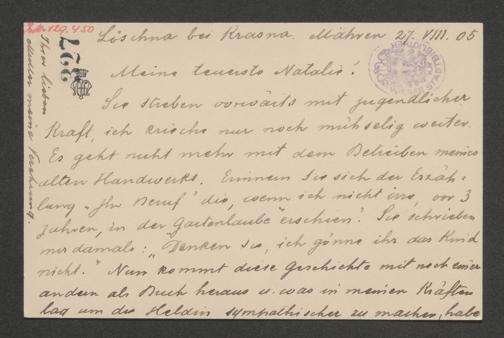 J.N. 129.450
227
Löschna bei Krasna Mähren 27. VIII. 05
Meine teuerste Natalie!
Sie streben vorwärts mit jugendlicher
Kraft, ich krieche nur noch mühselig weiter.
Es geht nicht mehr mit dem Betreiben meines
alten Handwerks. Erinnern Sie sich der Erzäh-
lung „Ihr Beruf" die, wenn ich nicht irre, vor 3
Jahren, in der „Gartenlaube" erschien? Sie schrieben
mir damals: „Denken Sie, ich gönne ihr das Kind
nicht." Nun kommt diese Geschichte mit noch einer
andern als Buch heraus u. was in meinen Kräften
lag um die Heldin sympathischer zu machen, habe
Ihrer lieben
Mutter meine Verehrung.